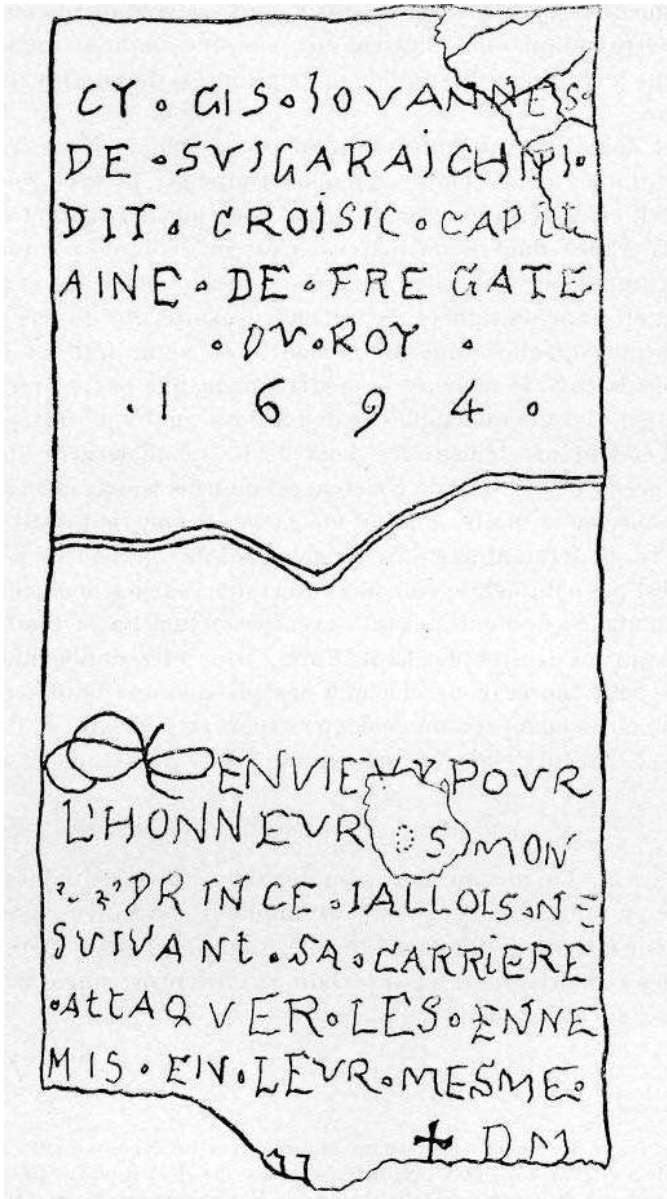 CY · GIS · IOVANNES ·
DE · SVIGARAICHIPI ·
DIT · CROISIC · CAPIT
AINE · DE · FREGATE
· DV · ROY ·
· 1 6 9 4 ·
ENVIEVX POVR
L'HONNEVR D S MON
PRINCE · IALLOIS · NE
SVIVANt · SA · CARRIERE
· AttAQVER · LES · ENNE
MIS · EN · LEVR · MESME ·
✠ D M